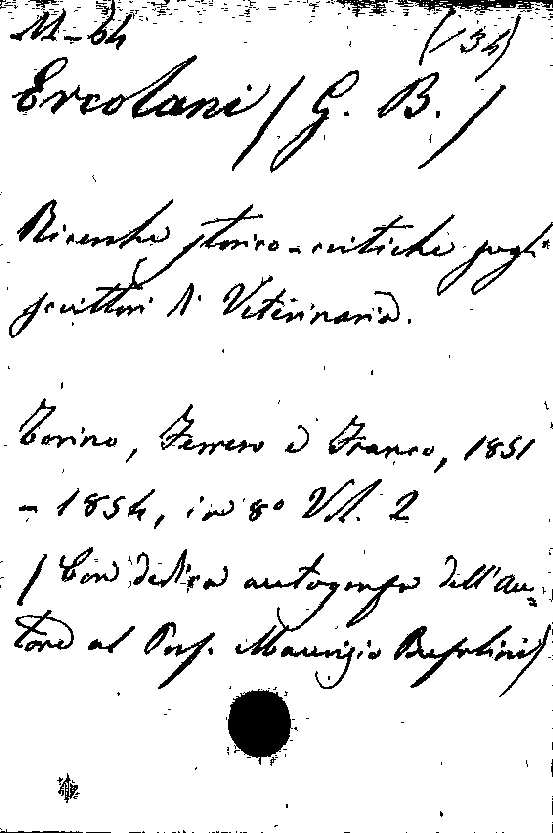 M-64 (134)
Ercolani (G. B.)
Ricerche storico-critiche sugli
scrittori di Veterinaria.
Torino, Ferrero e Franco, 1851
- 1854, in 8° Vol. 2
(Con dedica autografa dell'Au=
tore al Prof. Maurizio Bufalini)